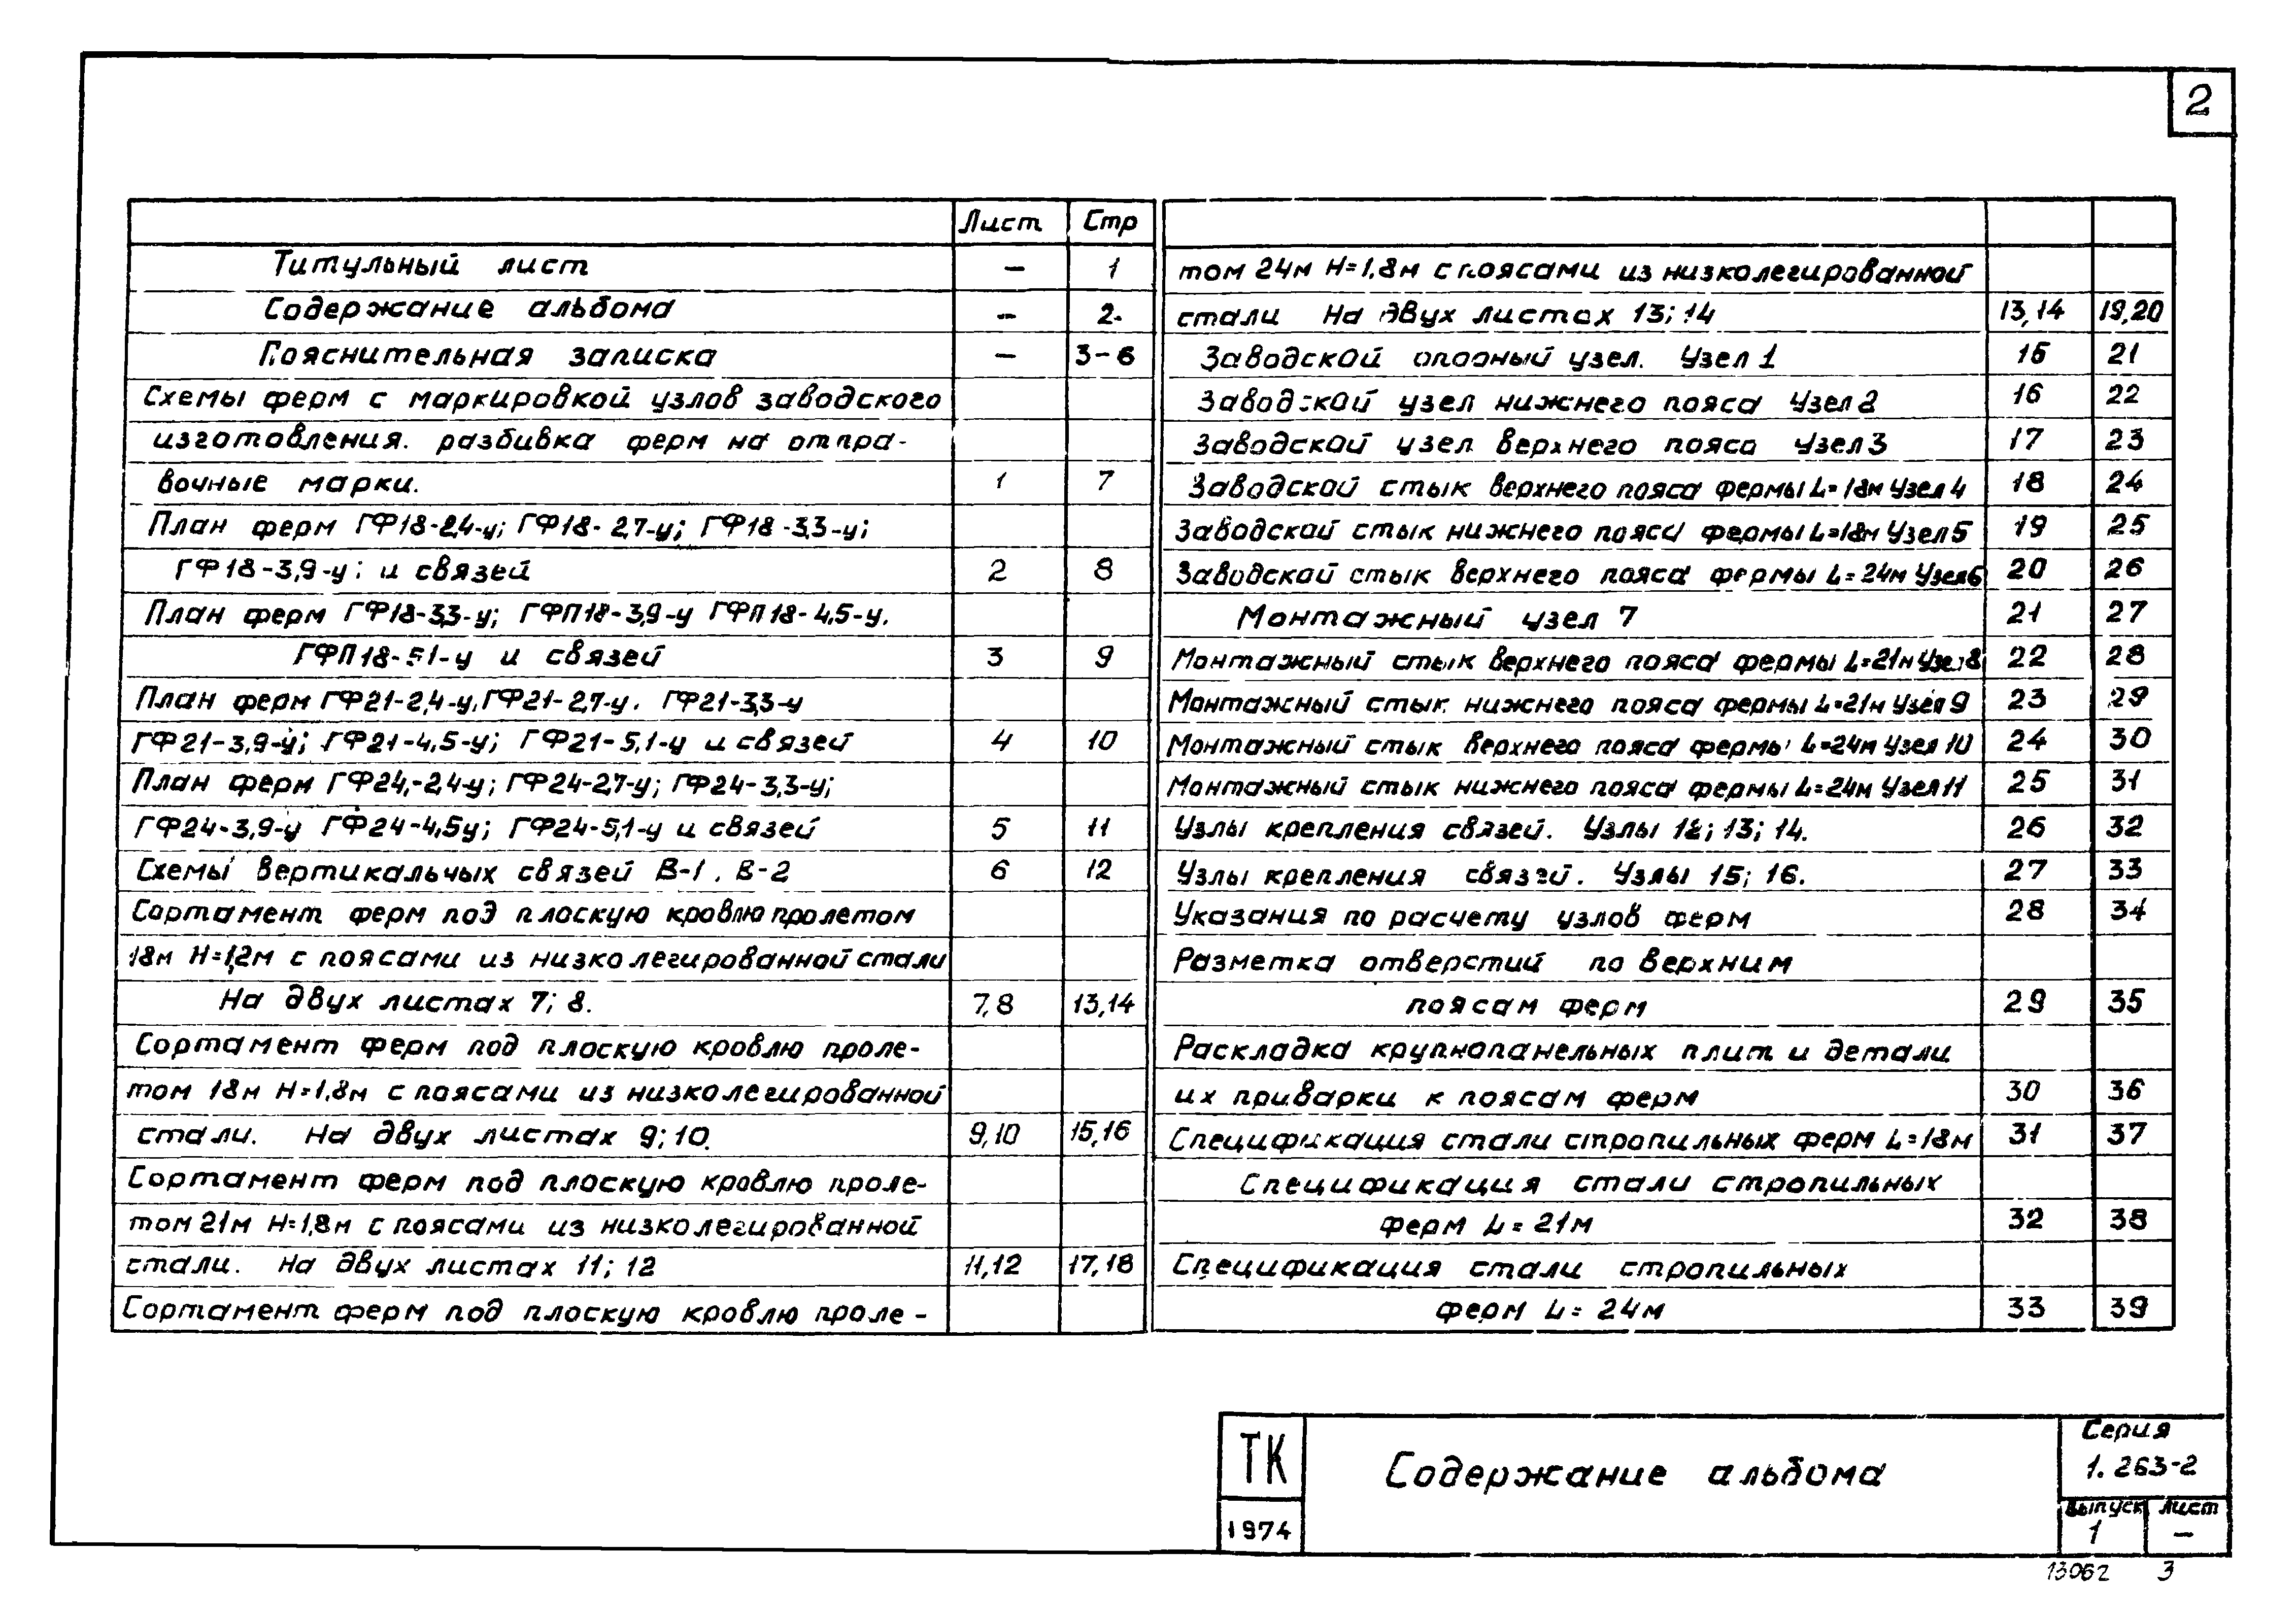 2
Лист Стр
Титульный лист — 1
Содержание альбома — 2.
Пояснительная записка — 3-6
Схемы ферм с маркировкой узлов заводского
изготовления. разбивка ферм на отпра-
вочные марки. 1 7
План ферм ГФ18-2,4-у; ГФ18-2,7-у; ГФ18-3,3-у;
ГФ18-3,9-у; и связей 2 8
План ферм ГФ18-3,3-у; ГФП18-3,9-у ГФП18-4,5-у.
ГФП18-51-у и связей 3 9
План ферм ГФ21-2,4-у, ГФ21-2,7-у. ГФ21-3,3-у
ГФ21-3,9-у; ГФ21-4,5-у; ГФ21-5,1-у и связей 4 10
План ферм ГФ24-2,4-у; ГФ24-2,7-у; ГФ24-3,3-у;
ГФ24-3,9-у ГФ24-4,5у; ГФ24-5,1-у и связей 5 11
Схемы вертикальных связей В-1, В-2 6 12
Сортамент ферм под плоскую кровлю пролетом
18м Н=1,2м с поясами из низколегированной стали
На двух листах 7; 8. 7,8 13,14
Сортамент ферм под плоскую кровлю проле-
том 18м Н=1,8м с поясами из низколегированной
стали. На двух листах 9; 10. 9,10 15,16
Сортамент ферм под плоскую кровлю проле-
том 21м Н=1,8м с поясами из низколегированной
стали. На двух листах 11; 12 11,12 17,18
Сортамент ферм под плоскую кровлю проле-
том 24м Н=1,8м с поясами из низколегированной
стали На двух листах 13; 14 13,14 19,20
Заводской опорный узел. Узел 1 15 21
Заводской узел нижнего пояса Узел 2 16 22
Заводской узел верхнего пояса Узел 3 17 23
Заводской стык верхнего пояса фермы L=18м Узел 4 18 24
Заводской стык нижнего пояса фермы L=18м Узел 5 19 25
Заводской стык верхнего пояса фермы L=24м Узел 6 20 26
Монтажный узел 7 21 27
Монтажный стык верхнего пояса фермы L=21м Узел 8 22 28
Монтажный стык нижнего пояса фермы L=21м Узел 9 23 29
Монтажный стык верхнего пояса фермы L=24м Узел 10 24 30
Монтажный стык нижнего пояса фермы L=24м Узел 11 25 31
Узлы крепления связей. Узлы 12; 13; 14. 26 32
Узлы крепления связей. Узлы 15; 16. 27 33
Указания по расчету узлов ферм 28 34
Разметка отверстий по верхним
поясам ферм 29 35
Раскладка крупнопанельных плит и детали
их приварки к поясам ферм 30 36
Спецификация стали стропильных ферм L=18м 31 37
Спецификация стали стропильных
ферм L=21м 32 38
Спецификация стали стропильных
ферм L=24м 33 39
ТК
1974
Содержание альбома
Серия
1.263-2
Выпуск Лист
1 —
13062 3